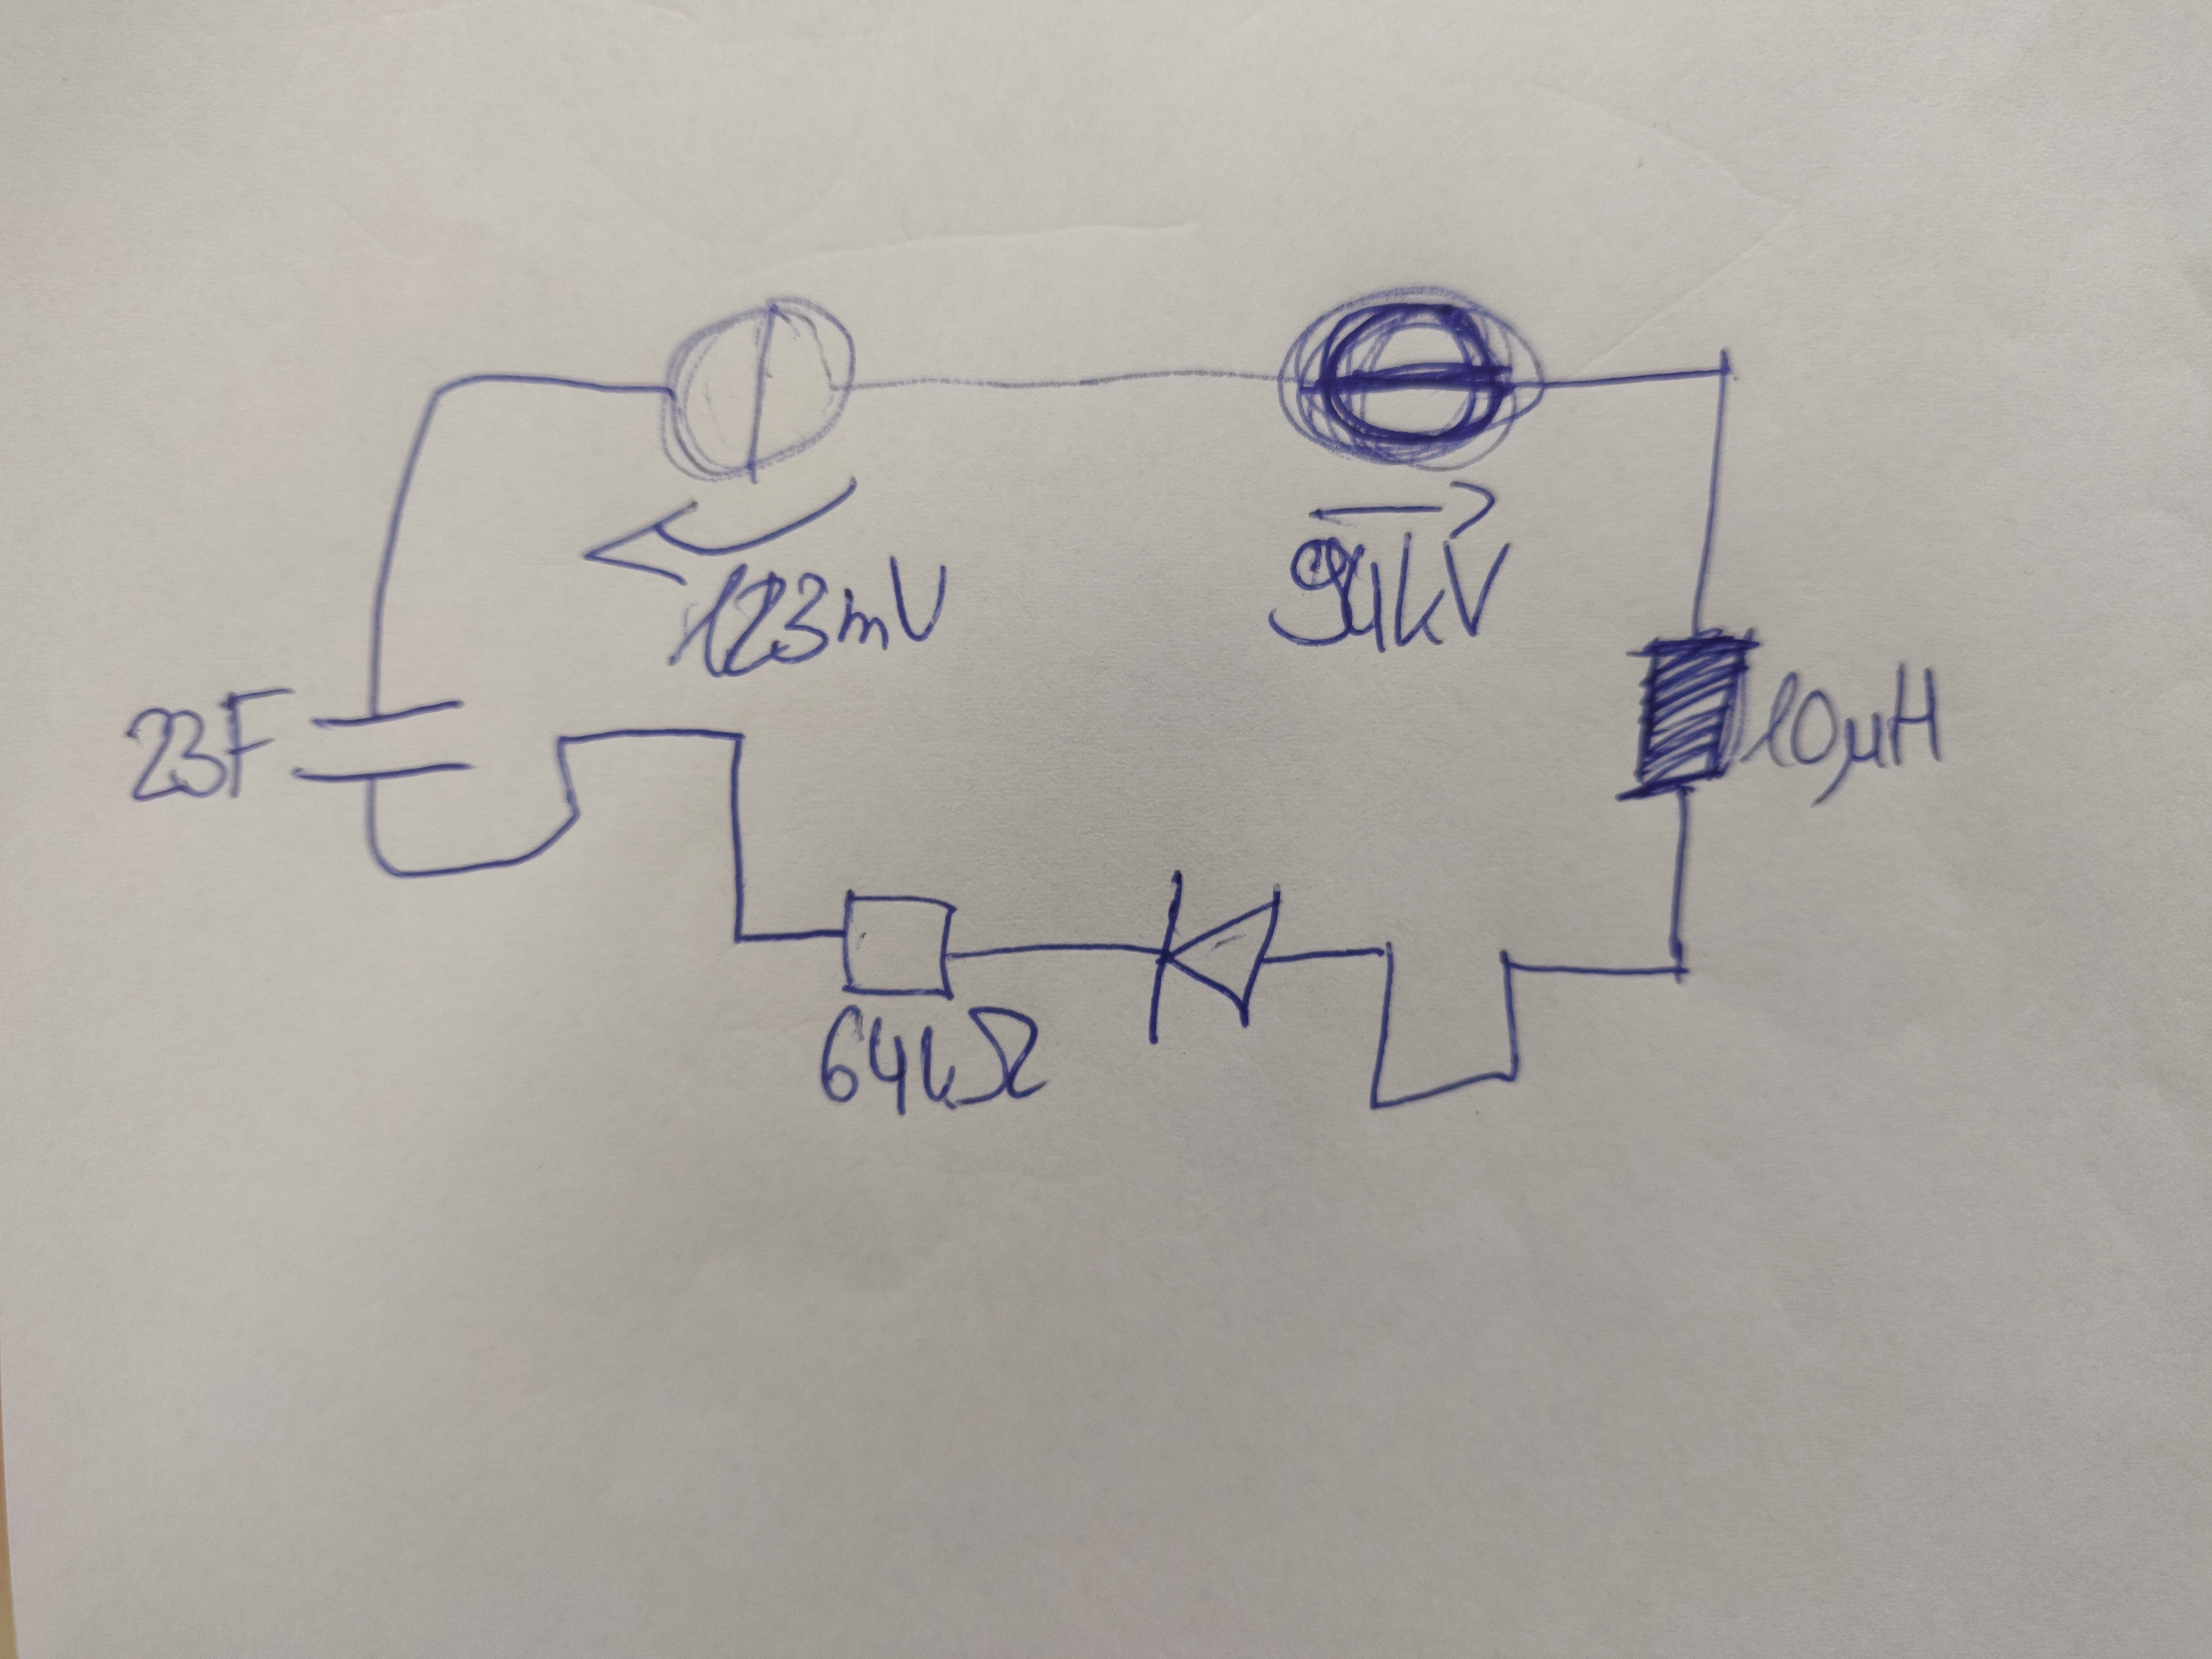 123mV
94kV
23F
10µH
64kΩ